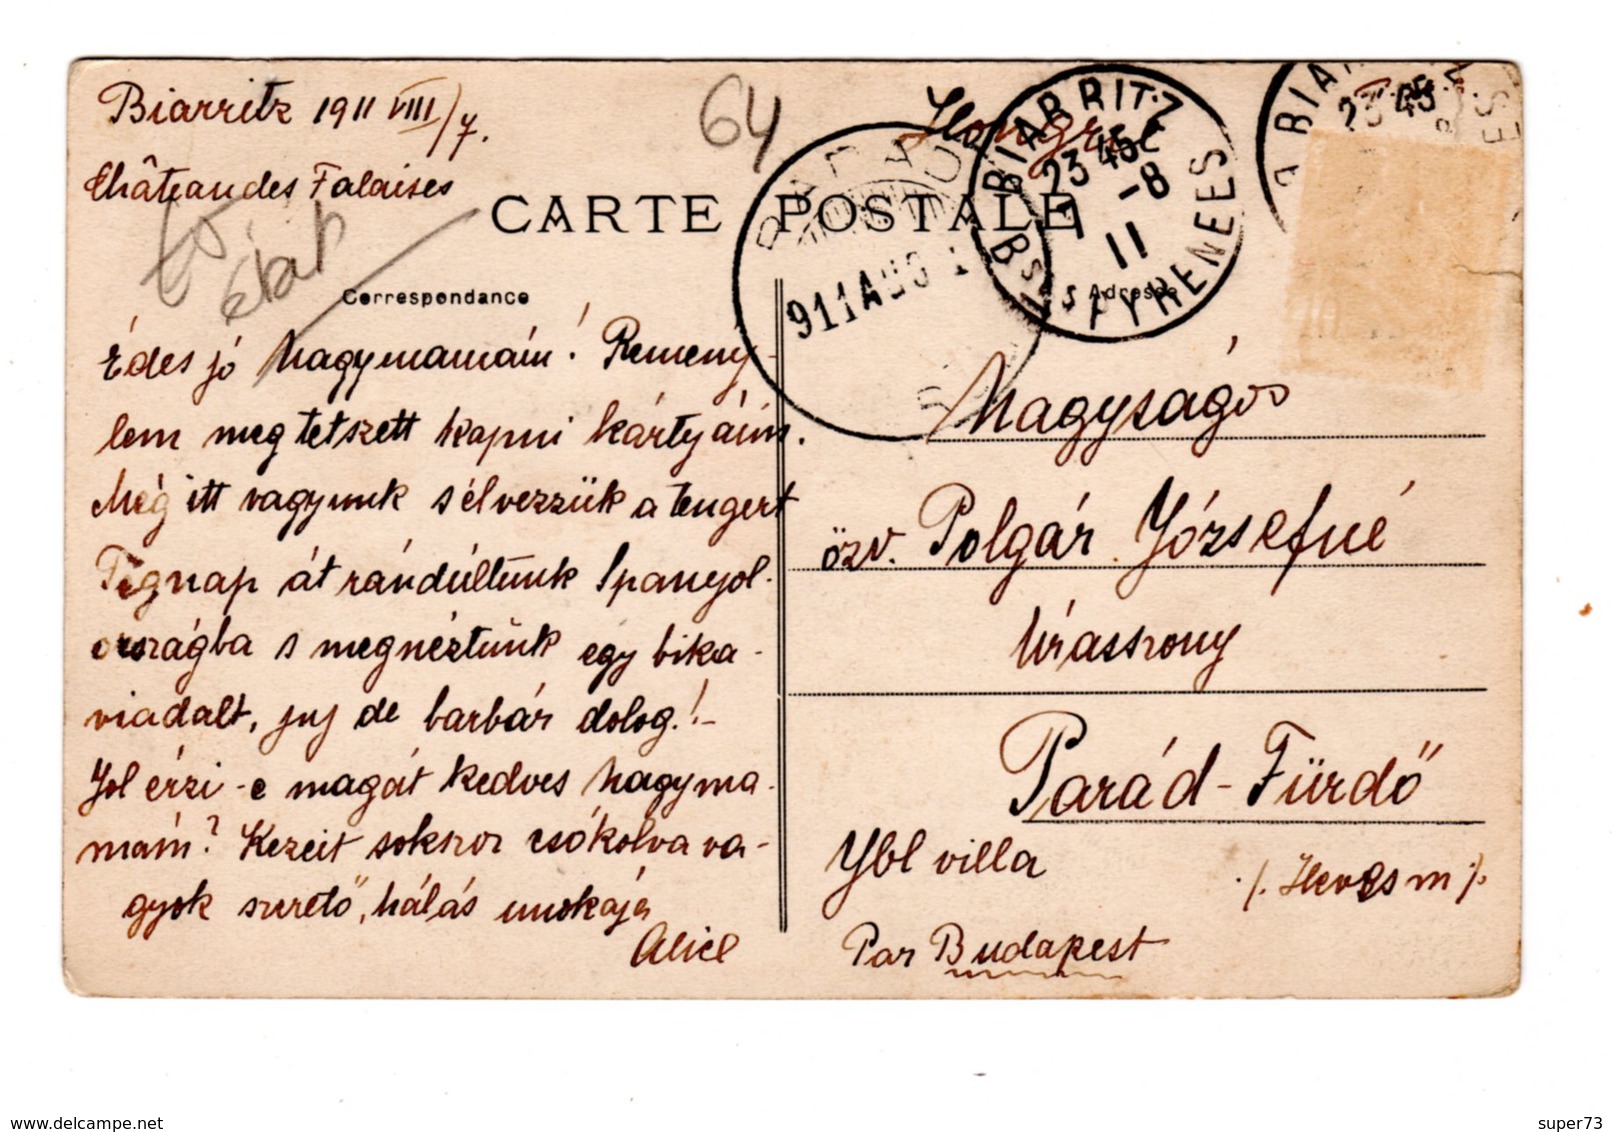 Biarritz 1911 VIII/7.
Château des Falaises
64
Hongrie
CARTE POSTALE
Correspondance
Adresse
BIARRITZ
23 45
7 -8
11
BSES PYRENEES
BIARRITZ
23 45
911 AUG
10
Édes jó Nagymamám! Remény-
lem megtetszett kapni kártyáim.
Még itt vagyunk s élvezzük a tengert
Tegnap át rándúltunk Spanyol-
országba s megnéztünk egy bika-
viadalt, juj de barbár dolog!-
Jol érzi-e magát kedves Nagyma-
mám? Kezeit sokszor csókolva va-
gyok szerető, hálás unokája
Alice
Nagyságos
özv. Polgár Józsefné
Úrasszony
Parád-Fürdő
Ybl villa
./. Heves m /.
Par Budapest
www.delcampe.net
super73